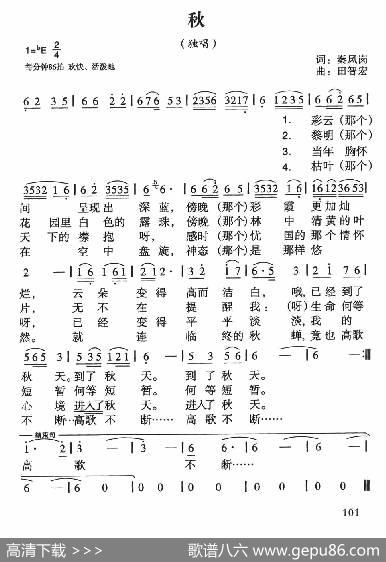 秋
（独唱）
1=ᵇE 2/4
每分钟85拍 欢快、活泼地
词：秦凤岗
曲：田智宏
6 2 3 5 | 6 6 2 2 | 6 7 6 5 3 | 2356 3217 | 6 1235 | 6 6 2 65 |
1. 彩云（那个）
2. 黎明（那个）
3. 当年 胸怀
4. 枯叶（那个）
3532 1 6 | 6 2 3535 | 6 6· | 6 6 2 2 | 3 3 0 2 3 | 161235 53 |
间 呈现出 深蓝，傍晚（那个）彩 霞 更加灿
花 园里白色的 露珠，傍晚（那个）林 中 清黄的叶
天 下的 襟抱 呀，感时（那个）忧 国的那个情怀
在 空中 盘旋，神态（那个）是 那样悠
烂， 云朵 变得 高而 洁白，哦，已经到了
片， 无不 在 提 醒 我：（呀）生命何等
呀， 已经 变得 平乎 淡 淡，我的
然。 就 连 临终的秋 蝉，竟也高歌
秋 天。到了 秋 天。 到了 秋 天。
短 暂 何等短 暂。 何等短 暂。
心 境 进入了秋 天。进入了秋 天。
不 断……高歌 不 断…… 高歌 不 断……
结束句
1· 2 | 3 — | 3 — | 6 — | 6 — |
高 歌 不 断……
6 — | 6 — | 0 0 | 0 0 | 0 0 | 0 0 ‖
101
高清下载 >>>
歌谱八六 www.gepu86.com